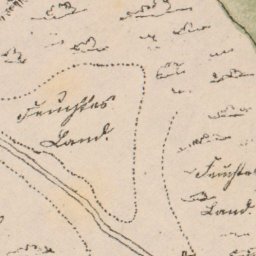 Feuchtes
Land.
Feuchtes
Land.